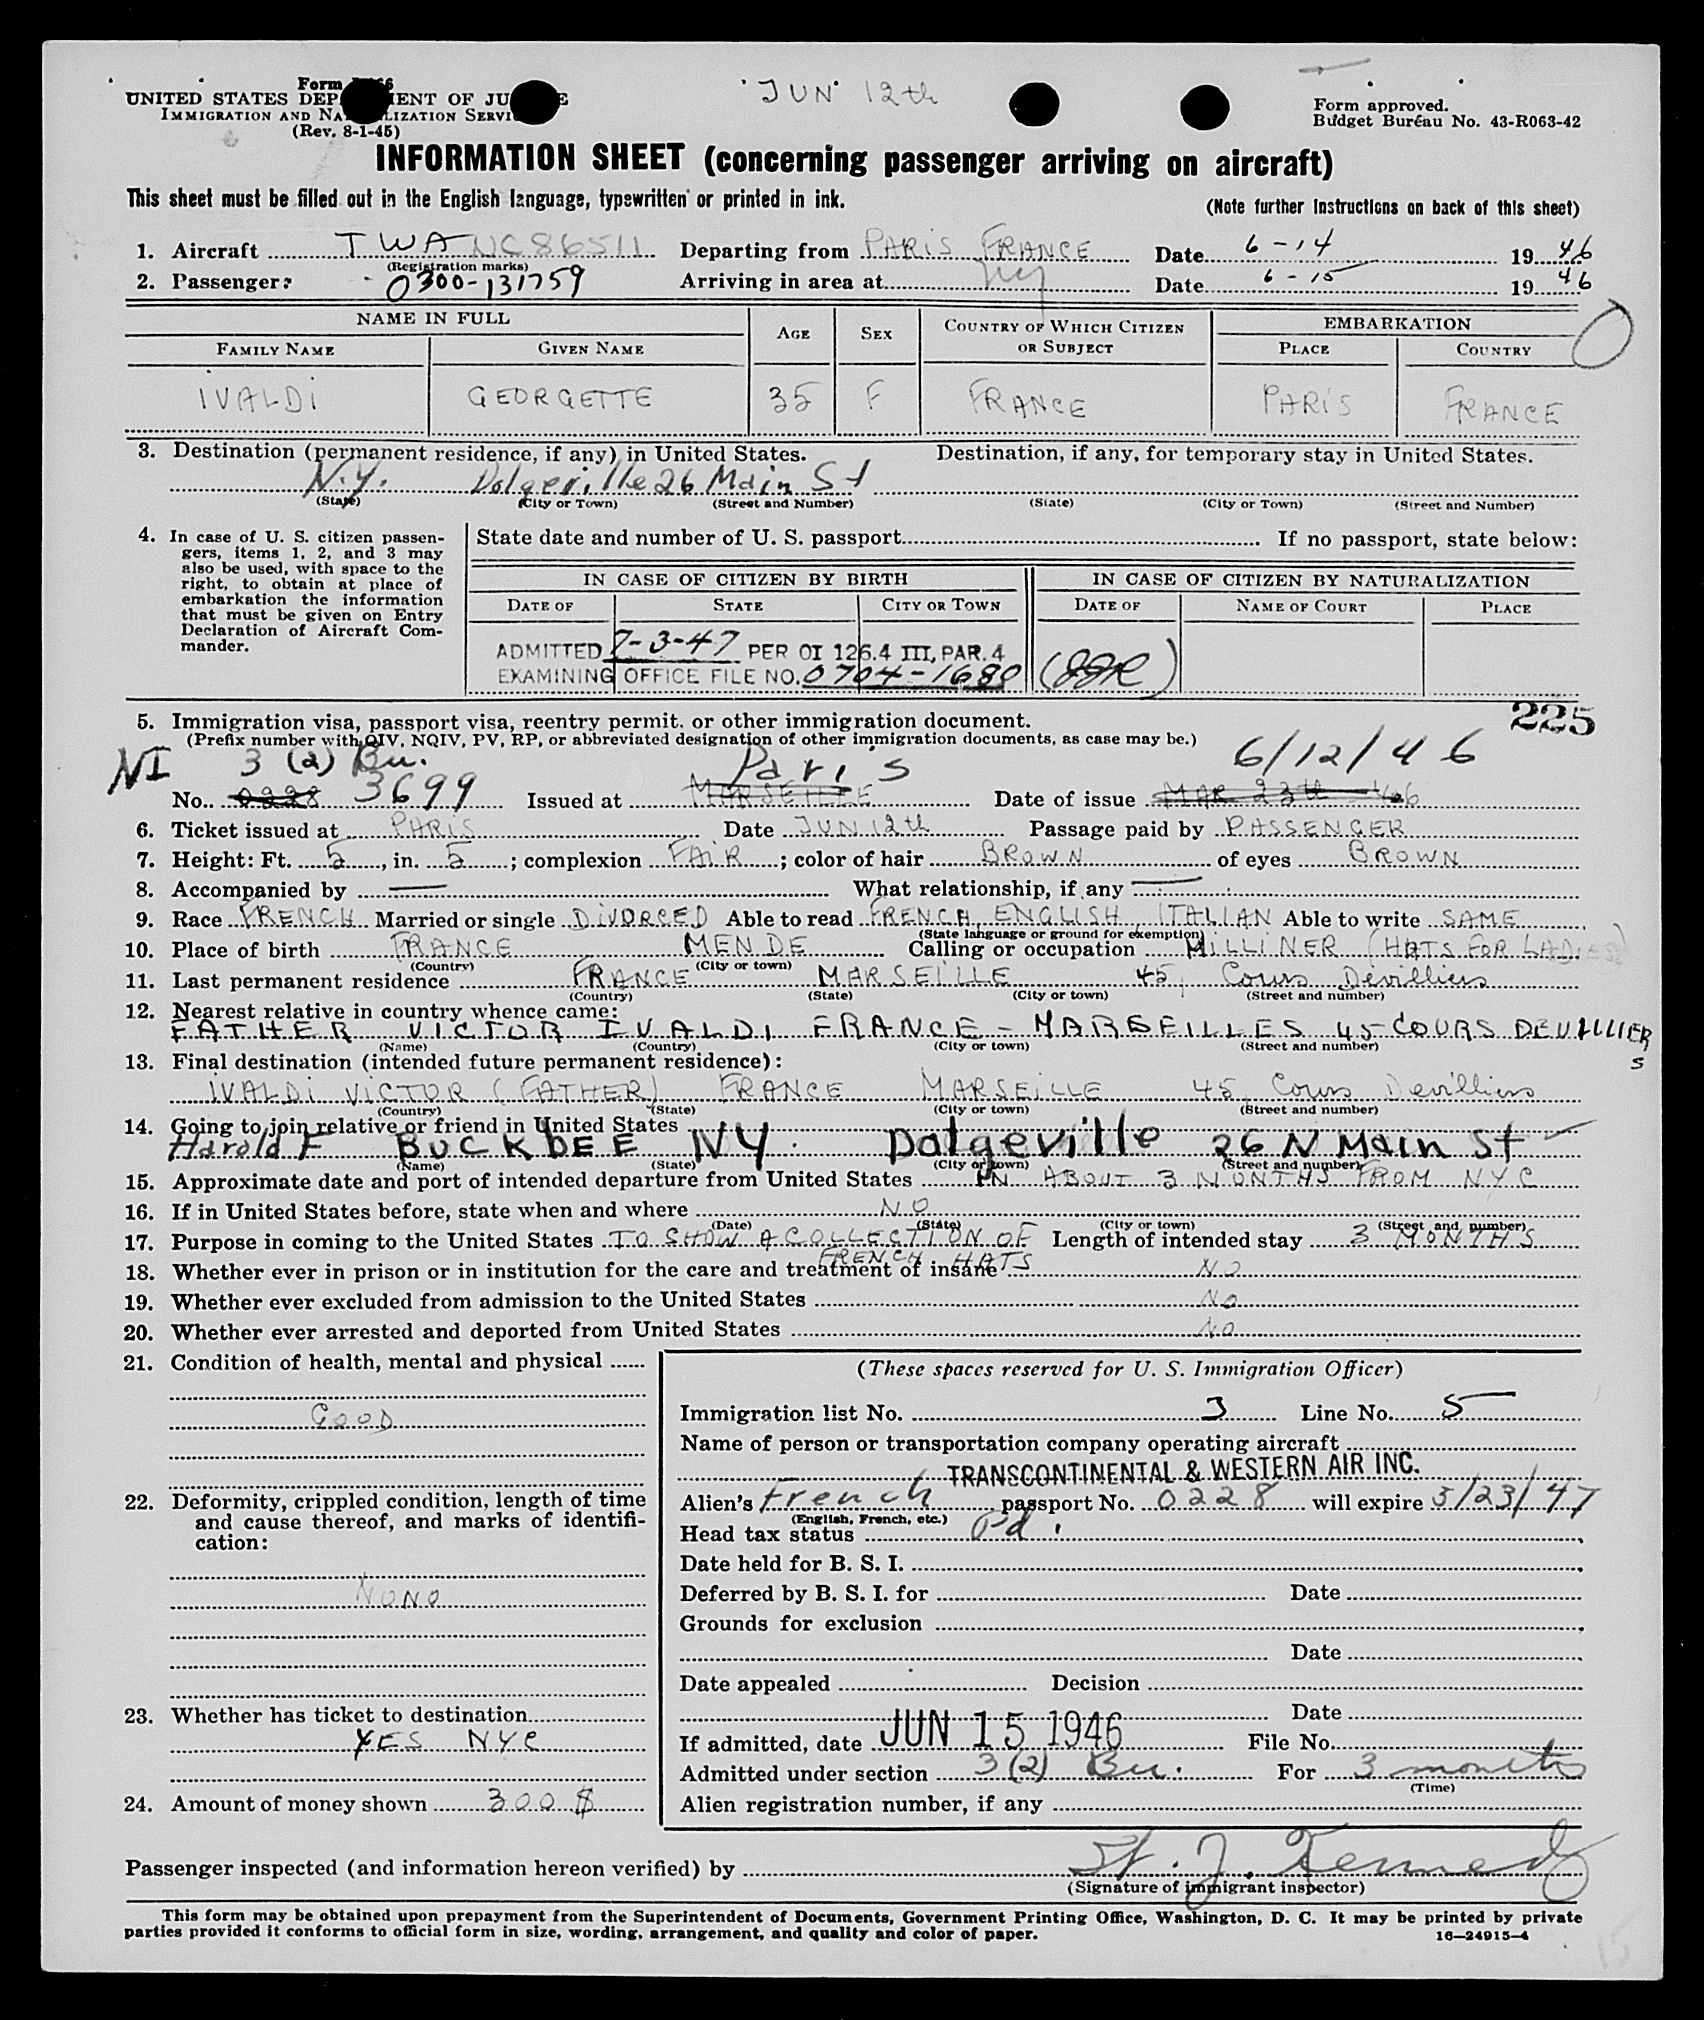 JUN 12th
Form
UNITED STATES DEP MENT OF JU E
IMMIGRATION AND NA LIZATION SERVI
(Rev. 8-1-45)
Form approved.
Budget Bureau No. 43-R063-42
INFORMATION SHEET (concerning passenger arriving on aircraft)
This sheet must be filled out in the English language, typewritten or printed in ink.
(Note further instructions on back of this sheet)
1. Aircraft TWA NC86511 Departing from PARIS FRANCE Date 6-14 1946
(Registration marks)
2. Passenger: 0300-131759 Arriving in area at NY Date 6-15 1946
NAME IN FULL AGE SEX COUNTRY OF WHICH CITIZEN OR SUBJECT EMBARKATION
FAMILY NAME GIVEN NAME PLACE COUNTRY
IVALDI GEORGETTE 35 F FRANCE PARIS FRANCE
3. Destination (permanent residence, if any) in United States. Destination, if any, for temporary stay in United States.
N.Y. Dolgeville 26 Main St
(State) (City or Town) (Street and Number) (State) (City or Town) (Street and Number)
4. In case of U. S. citizen passen-
gers, items 1, 2, and 3 may
also be used, with space to the
right, to obtain at place of
embarkation the information
that must be given on Entry
Declaration of Aircraft Com-
mander.
State date and number of U. S. passport If no passport, state below:
IN CASE OF CITIZEN BY BIRTH IN CASE OF CITIZEN BY NATURALIZATION
DATE OF STATE CITY OR TOWN DATE OF NAME OF COURT PLACE
ADMITTED 7-3-47 PER OI 126.4 III, PAR. 4
EXAMINING OFFICE FILE NO. 0704-1680
225
5. Immigration visa, passport visa, reentry permit, or other immigration document.
(Prefix number with QIV, NQIV, PV, RP, or abbreviated designation of other immigration documents, as case may be.)
NI 3 (2) Bu. Paris 6/12/46
No. 0228 3699 Issued at MARSEILLE Date of issue MAR 23th 46
6. Ticket issued at PARIS Date JUN 12th Passage paid by PASSENGER
7. Height: Ft. 5, in. 5; complexion FAIR; color of hair BROWN of eyes BROWN
8. Accompanied by — What relationship, if any —
9. Race FRENCH Married or single DIVORCED Able to read FRENCH, ENGLISH ITALIAN Able to write SAME
(State language or ground for exemption)
10. Place of birth FRANCE MENDE Calling or occupation MILLINER (HATS FOR LADIES)
(Country) (City or town)
11. Last permanent residence FRANCE MARSEILLE 45, Cours Devilliers
(Country) (State) (City or town) (Street and number)
12. Nearest relative in country whence came:
FATHER VICTOR IVALDI FRANCE - MARSEILLES 45 COURS DEVILLIERS
(Name) (Country) (City or town) (Street and number)
13. Final destination (intended future permanent residence):
IVALDI VICTOR (FATHER) FRANCE MARSEILLE 45, Cours Devilliers
(Country) (State) (City or town) (Street and number)
14. Going to join relative or friend in United States
Harold F BUCKBEE NY. Dolgeville 26 N Main St
(Name) (State) (City or town) (Street and number)
15. Approximate date and port of intended departure from United States IN ABOUT 3 MONTHS FROM NYC
16. If in United States before, state when and where NO
(Date) (State) (City or town) (Street and number)
17. Purpose in coming to the United States TO SHOW A COLLECTION OF Length of intended stay 3 MONTHS
FRENCH HATS
18. Whether ever in prison or in institution for the care and treatment of insane NO
19. Whether ever excluded from admission to the United States NO
20. Whether ever arrested and deported from United States NO
21. Condition of health, mental and physical
GOOD
22. Deformity, crippled condition, length of time
and cause thereof, and marks of identifi-
cation:
NONO
23. Whether has ticket to destination
YES NYC
24. Amount of money shown 300 $
(These spaces reserved for U. S. Immigration Officer)
Immigration list No. 3 Line No. 5
Name of person or transportation company operating aircraft
TRANSCONTINENTAL & WESTERN AIR INC.
Alien's French passport No. 0228 will expire 3/23/47
(English, French, etc.)
Head tax status Pd.
Date held for B. S. I.
Deferred by B. S. I. for Date
Grounds for exclusion
Date
Date appealed Decision
Date
If admitted, date JUN 15 1946 File No.
Admitted under section 3(2) Bu. For 3 months
(Time)
Alien registration number, if any
Passenger inspected (and information hereon verified) by J. Kennedy
(Signature of immigrant inspector)
This form may be obtained upon prepayment from the Superintendent of Documents, Government Printing Office, Washington, D. C. It may be printed by private
parties provided it conforms to official form in size, wording, arrangement, and quality and color of paper.
16—24915-4